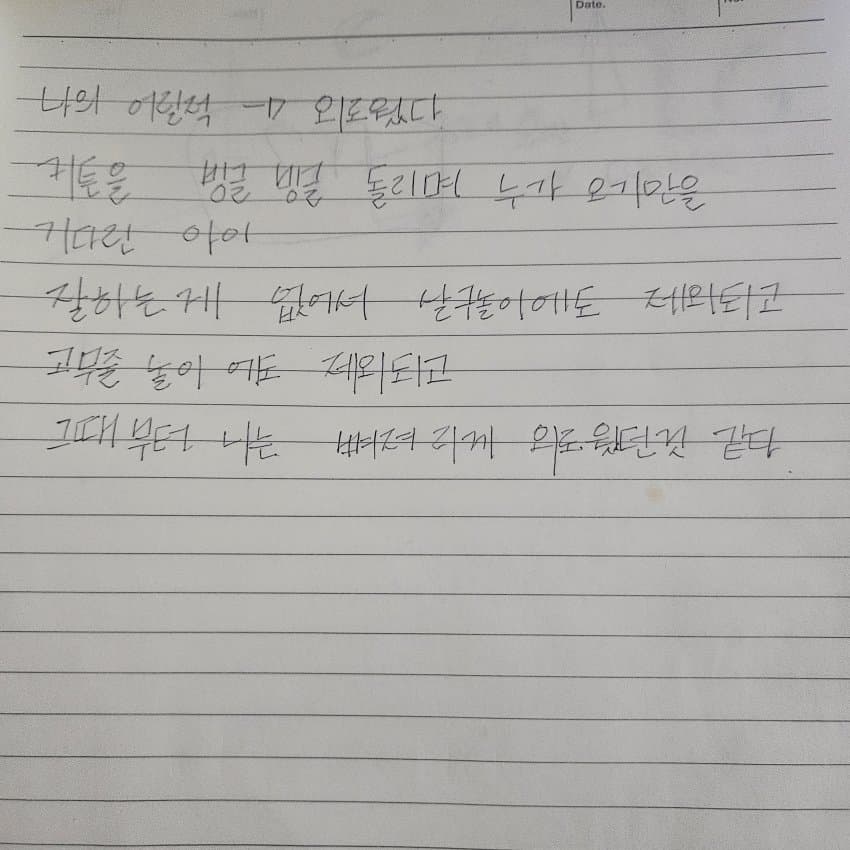 Date.
나의 어릴적 → 외로웠다
커튼을 빙글 빙글 돌리며 누가 오기만을
기다린 아이
잘하는게 없어서 살구놀이에도 제외되고
고무줄 놀이 에도 제외되고
그때부터 나는 뼈져리게 외로웠던것 같다.